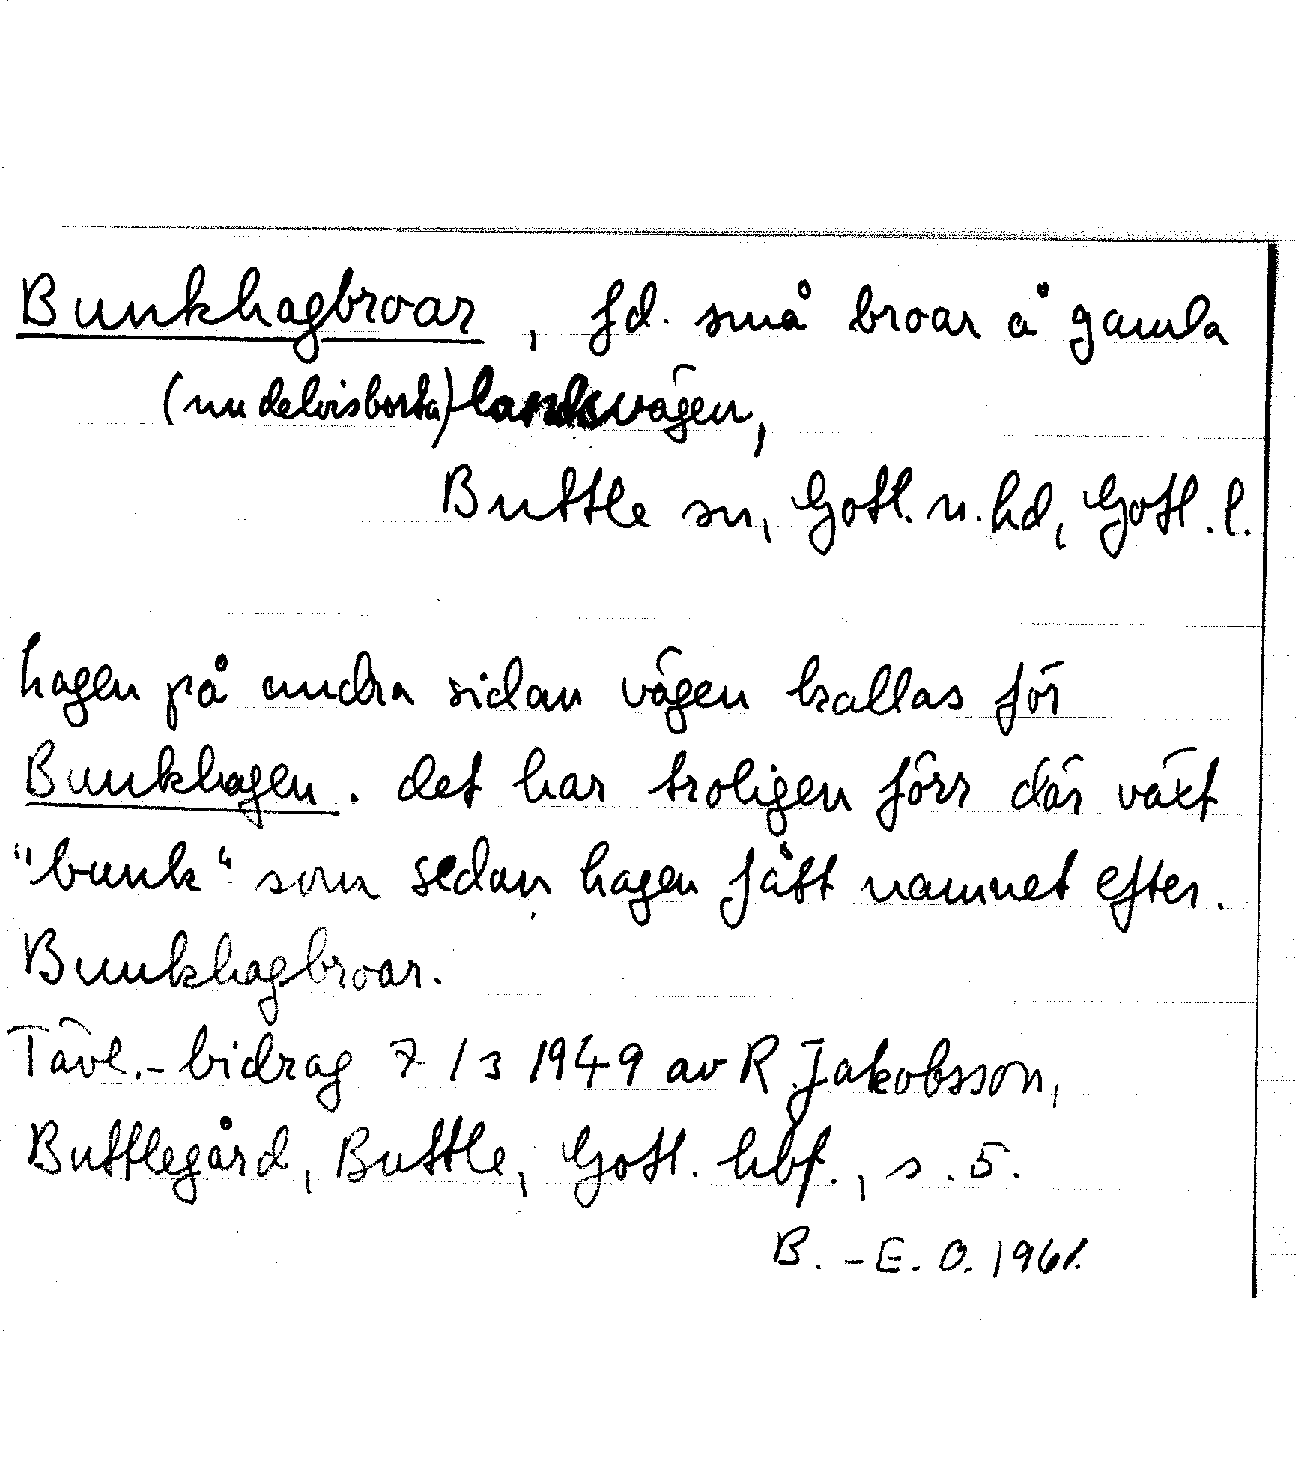 Bunkhagbroar, fd. små broar å gamla
(nu delvis borta) landsvägen,
Buttle sn, Gotl. n. hd, Gotl. l.
hagen på andra sidan vägen kallas för
Bunkhagen. det har troligen förr där växt
"bunk" som sedan hagen fått namnet efter.
Bunkhagbroar.
Tävl.-bidrag 7/3 1949 av R. Jakobsson,
Buttlegård, Buttle, Gotl. hbf., s. 5.
B.-E. O. 1961.